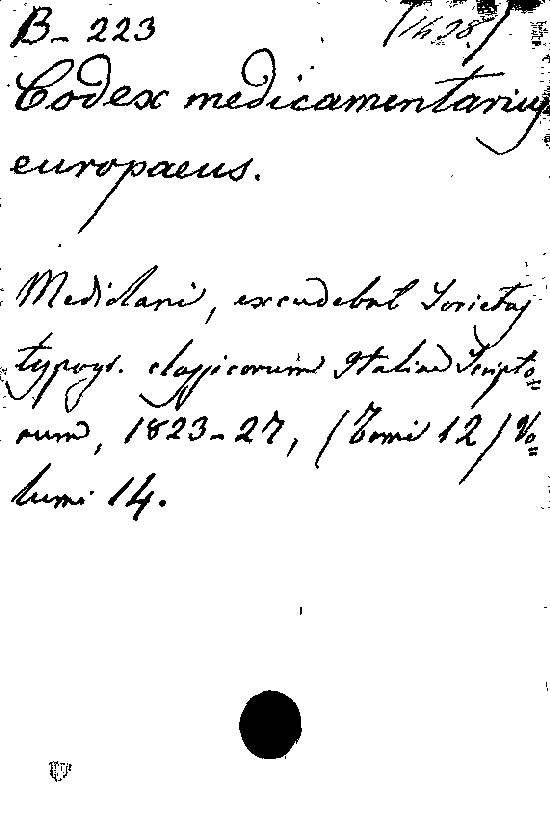 B- 223 (1498.)
Codex medicamentarius
europaeus.
Mediolani, excudebat Societas
typogr. classicorum Italiae Scripto=
rum, 1823-27, (Tomi 12) Vo=
lumi 14.